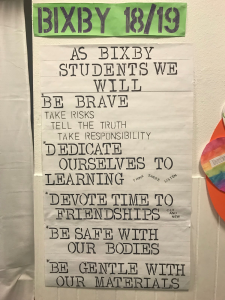 BIXBY 18/19
AS BIXBY
STUDENTS WE
WILL
BE BRAVE
TAKE RISKS
TELL THE TRUTH
TAKE RESPONSIBILITY
DEDICATE
OURSELVES TO
LEARNING
DEVOTE TIME TO
FRIENDSHIPS
BE SAFE WITH
OUR BODIES
BE GENTLE WITH
OUR MATERIALS